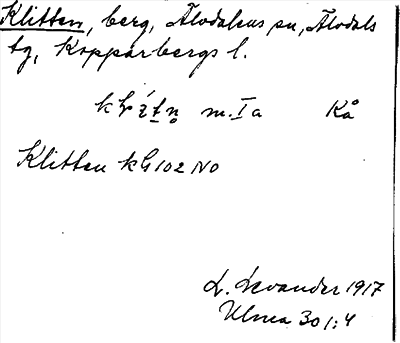 Klitten, berg, Älvdalens sn, Älvdals
tg, Kopparbergs l.
m. I a Kå
Klitten kG 102 NO
L. Levander 1917
Ulma 301:4